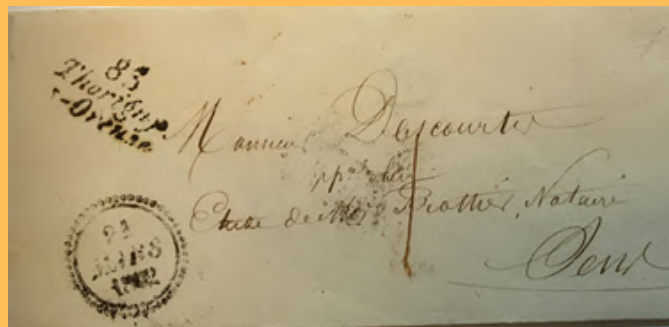 83
Thorigny.
s-Oreuse
Monsieur Descourtis
pp.al clerc
Etude de Me Brottier, Notaire
Sens
21
MARS